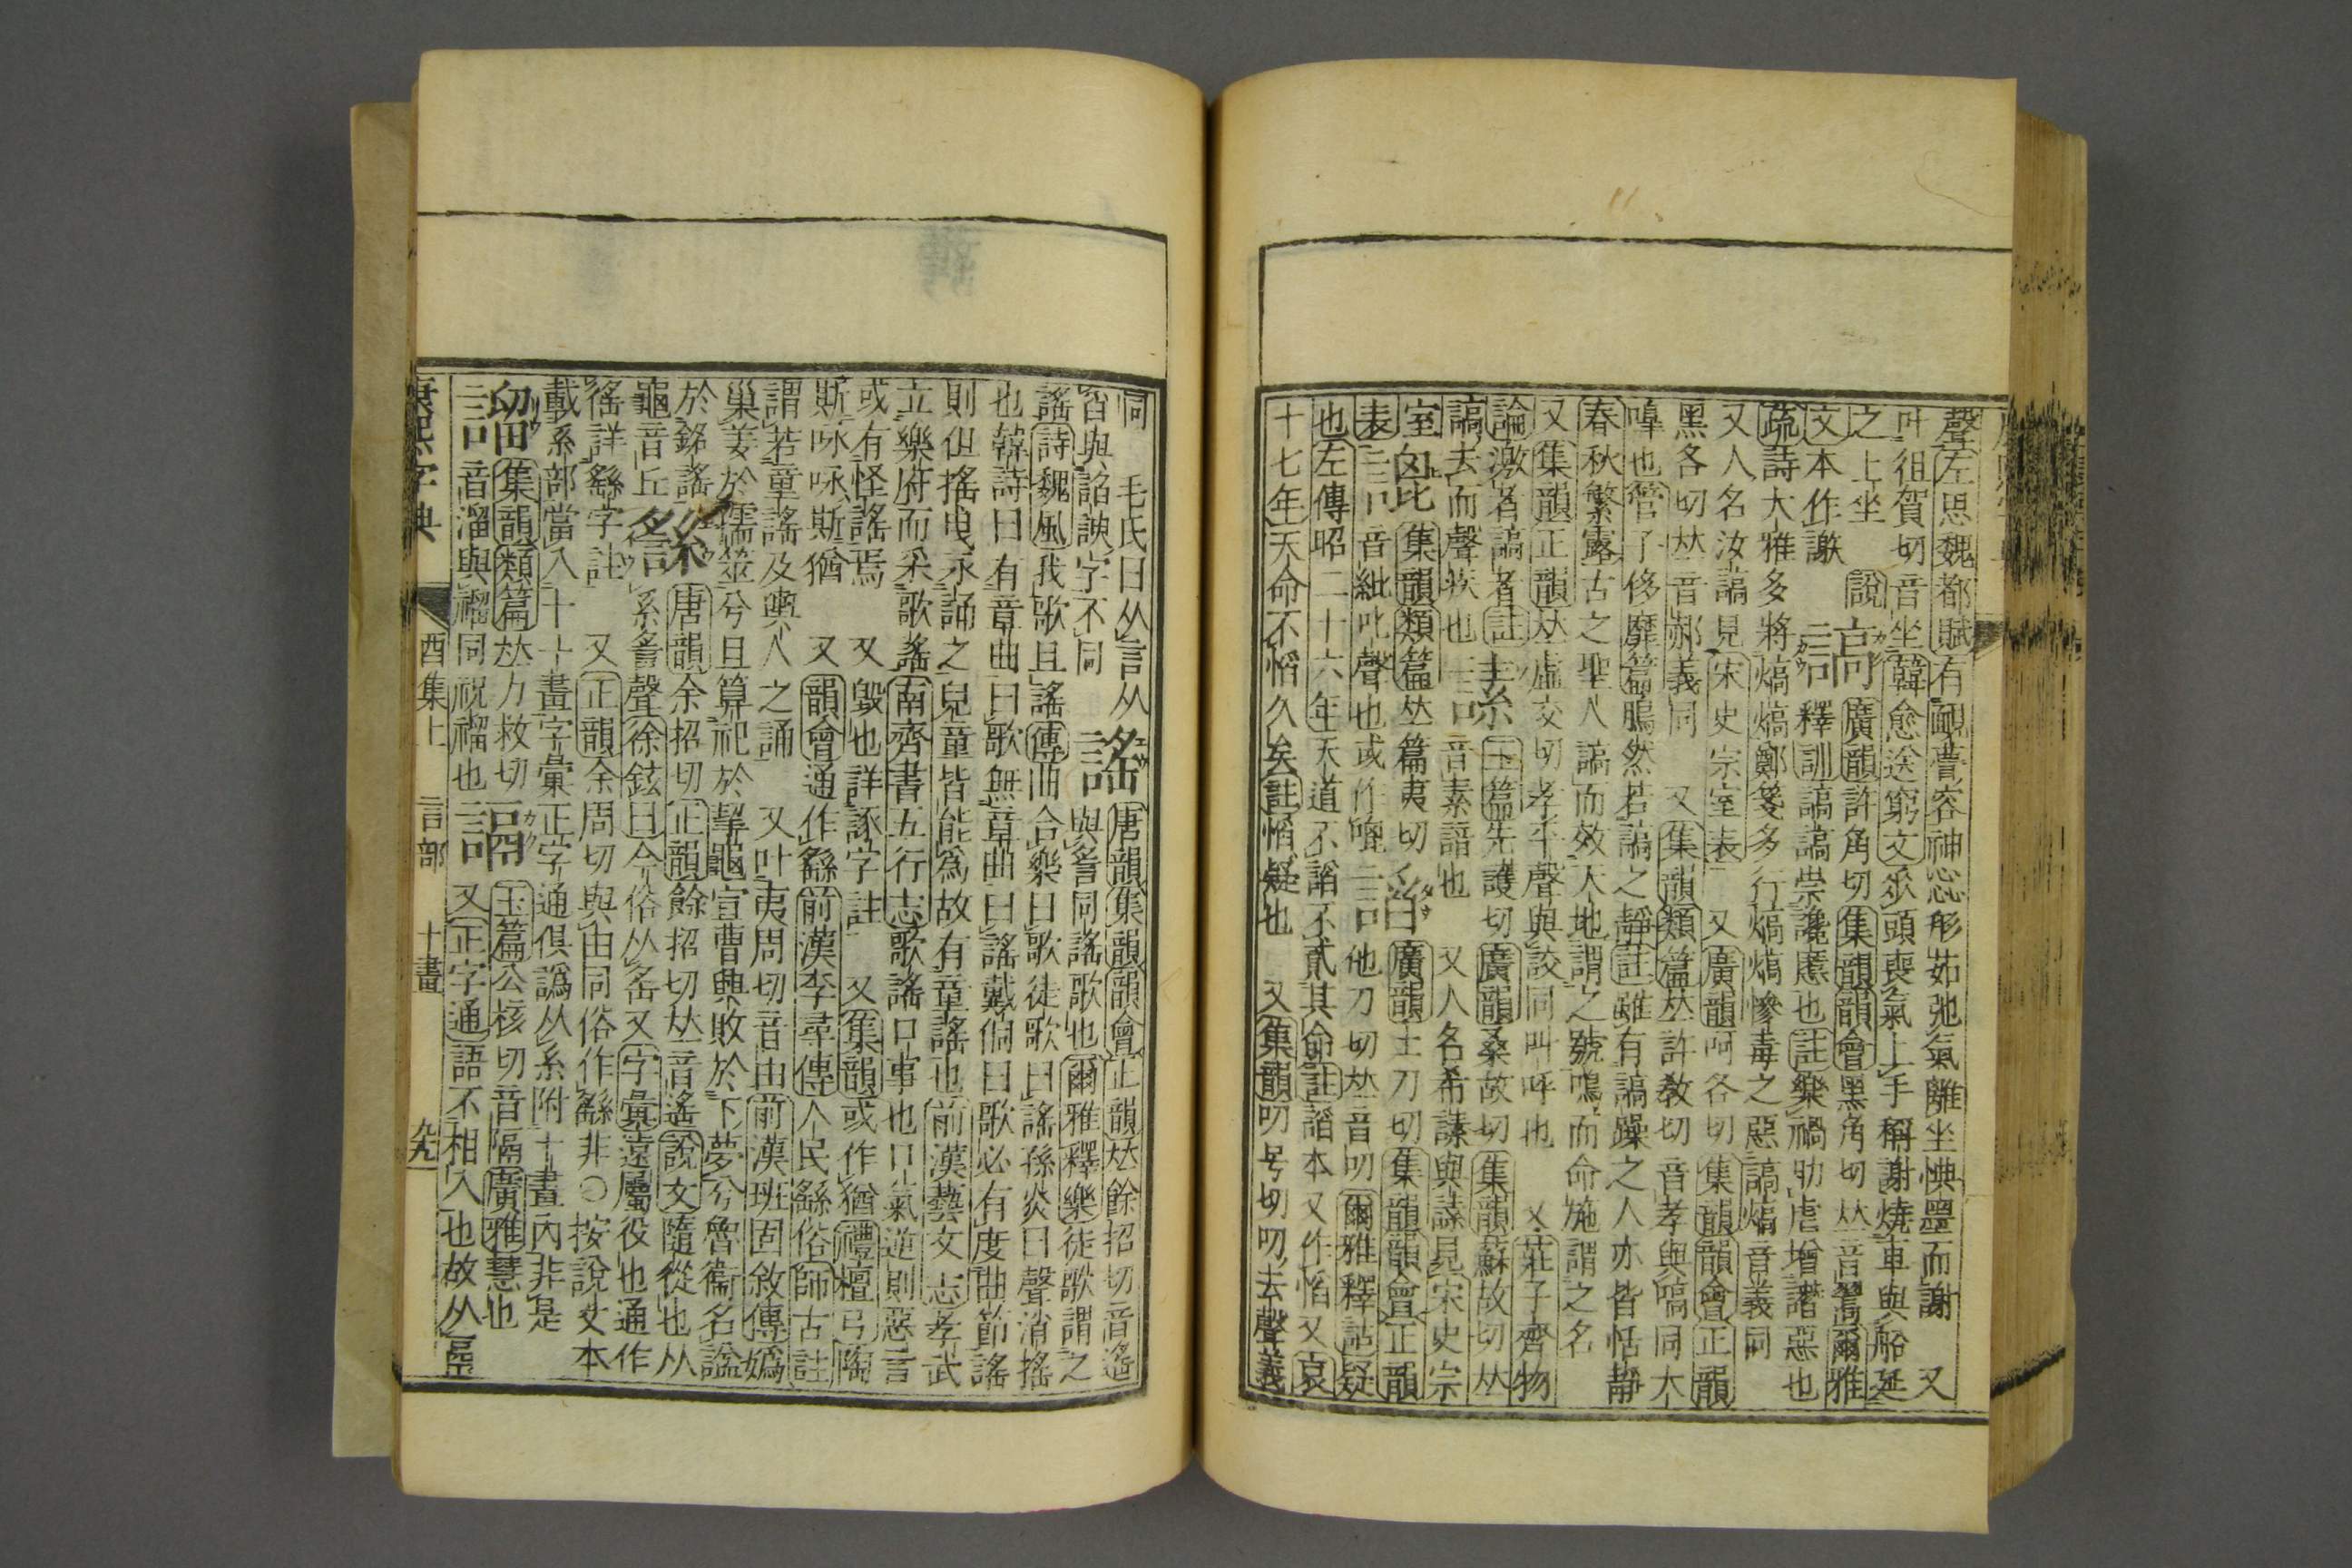 聲左思魏都賦有靦瞢容神惢形茹弛氣離坐㥏墨而謝　又
叶徂賀切音坐韓愈送窮文㸒頭喪氣上手稱謝燒車與船延
之上坐　說
文本作謞
謞
廣韻許角切集韻韻會黑角切𠀤音嗃爾雅
釋訓謞謞崇讒慝也註樂禍助虐增譖惡也
疏詩大雅多將熇熇鄭箋多行熇熇慘毒之惡謞熇音義同
又人名汝謞見宋史宗室表　又廣韻呵各切集韻韻會正韻
黑各切𠀤音郝義同　又集韻類篇𠀤許教切音孝與嗃同大
嘷也管子侈靡篇鴞然若謞之靜註雖有謞躁之人亦皆恬靜
春秋繁露古之聖人謞而效天地謂之號鳴而命施謂之名
又集韻正韻𠀤虛交切孝平聲與詨同叫呼也　又莊子齊物
論激者謞者註
謞去而聲疾也
𧪜
玉篇先護切　廣韻桑故切集韻蘇故切𠀤
音素譖也　又人名希𧪜與𧪜見宋史宗
室
表
集韻類篇𠀤篇夷切
音紕叱聲也或作
謟
廣韻土刀切集韻韻會正韻
他刀切𠀤音叨爾雅釋詁疑
也左傳昭二十六年天道不謟不貳其命註謟本又作慆又哀
十七年天命不慆久矣註慆疑也　又集韻叨号切叨去聲義
同　毛氏曰从言从
舀與諂諛字不同
謠
唐韻集韻韻會正韻𠀤餘招切音遙
與䚻同謠歌也爾雅釋樂徒歌謂之
謠詩魏風我歌且謠傳曲合樂曰歌徒歌曰謠孫炎曰聲消搖
也韓詩曰有章曲曰歌無章曲曰謠戴侗曰歌必有度曲節謠
則但搖曳永誦之兒童皆能爲故有童謠也前漢藝文志孝武
立樂府而采歌謠南齊書五行志歌謠口事也口氣逆則惡言
或有怪謠焉　又毀也詳諑字註　又集韻或作猶禮檀弓陶
斯咏咏斯猶　又韻會通作繇前漢李尋傳人民繇俗師古註
謂若童謠及輿人之誦　又叶夷周切音由前漢班固敘傳嬀
巢姜於孺筮兮旦算祀於挈龜宣曹興敗於下夢兮魯衞名諡
於銘謠
龜音丘
䌛
唐韻余招切正韻餘招切𠀤音遙說文隨從也从
系䚻聲徐鉉曰今俗从䍃又字彙遠屬役也通作
徭詳繇字註　又正韻余周切與由同俗作繇非○按說文本
載系部當入十十畫字彙正字通俱譌从系附十畫內非是
𧪮
集韻類篇𠀤力救切
音溜與䄂同祝䄂也
謆
玉篇公核切音隔廣雅慧也
又正字通語不相入也故从鬲
康熙字典　酉集上　言部　十畫　九九